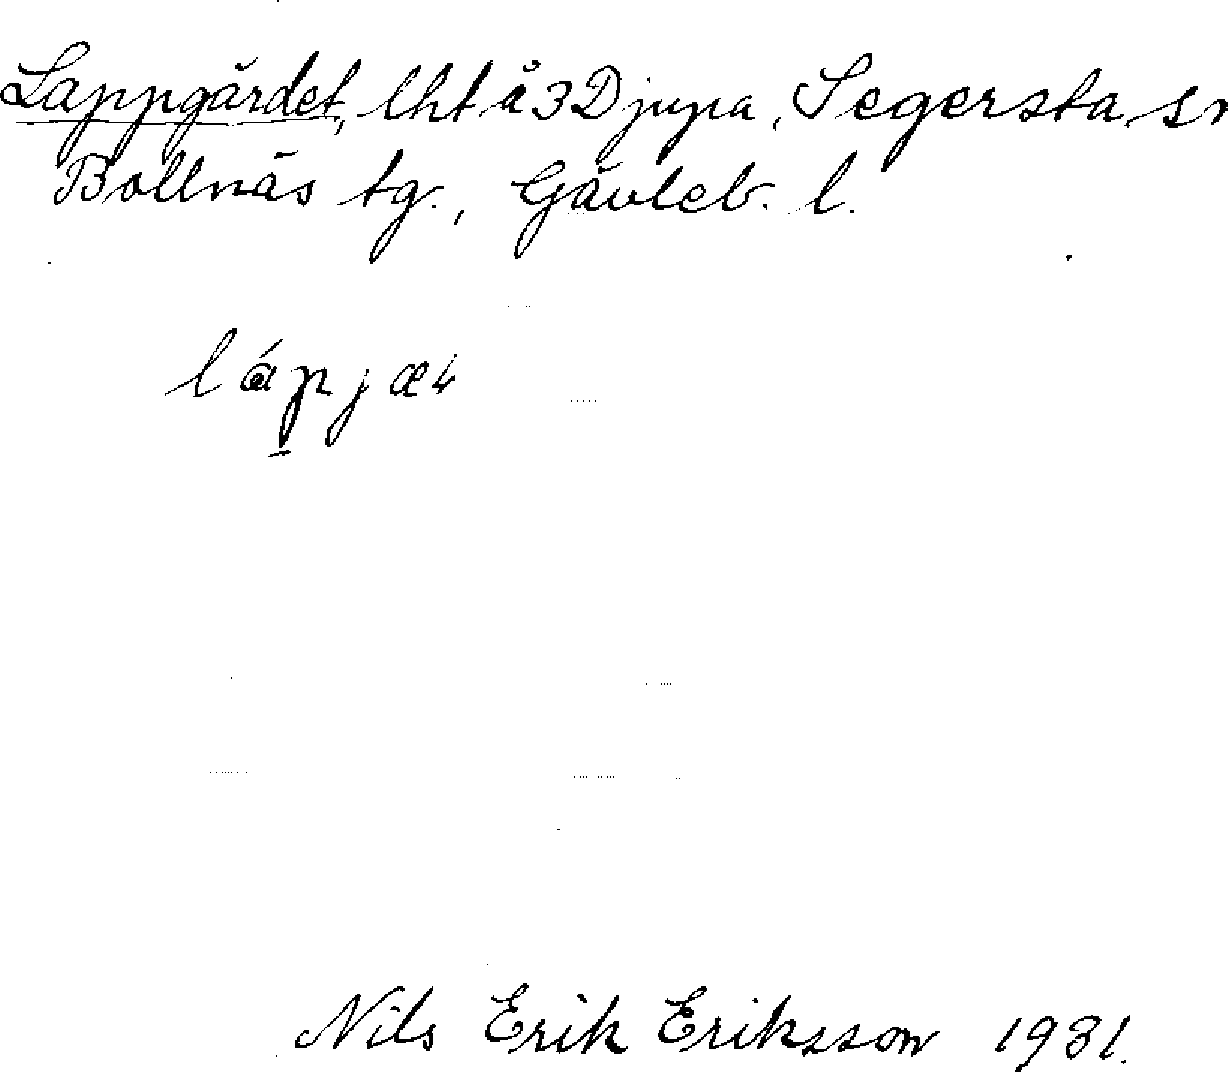 Lappgärdet, lht å 3 Djupa, Segersta sn
Bollnäs tg., Gävleb. l.
lápjæ
Nils Erik Eriksson 1931.